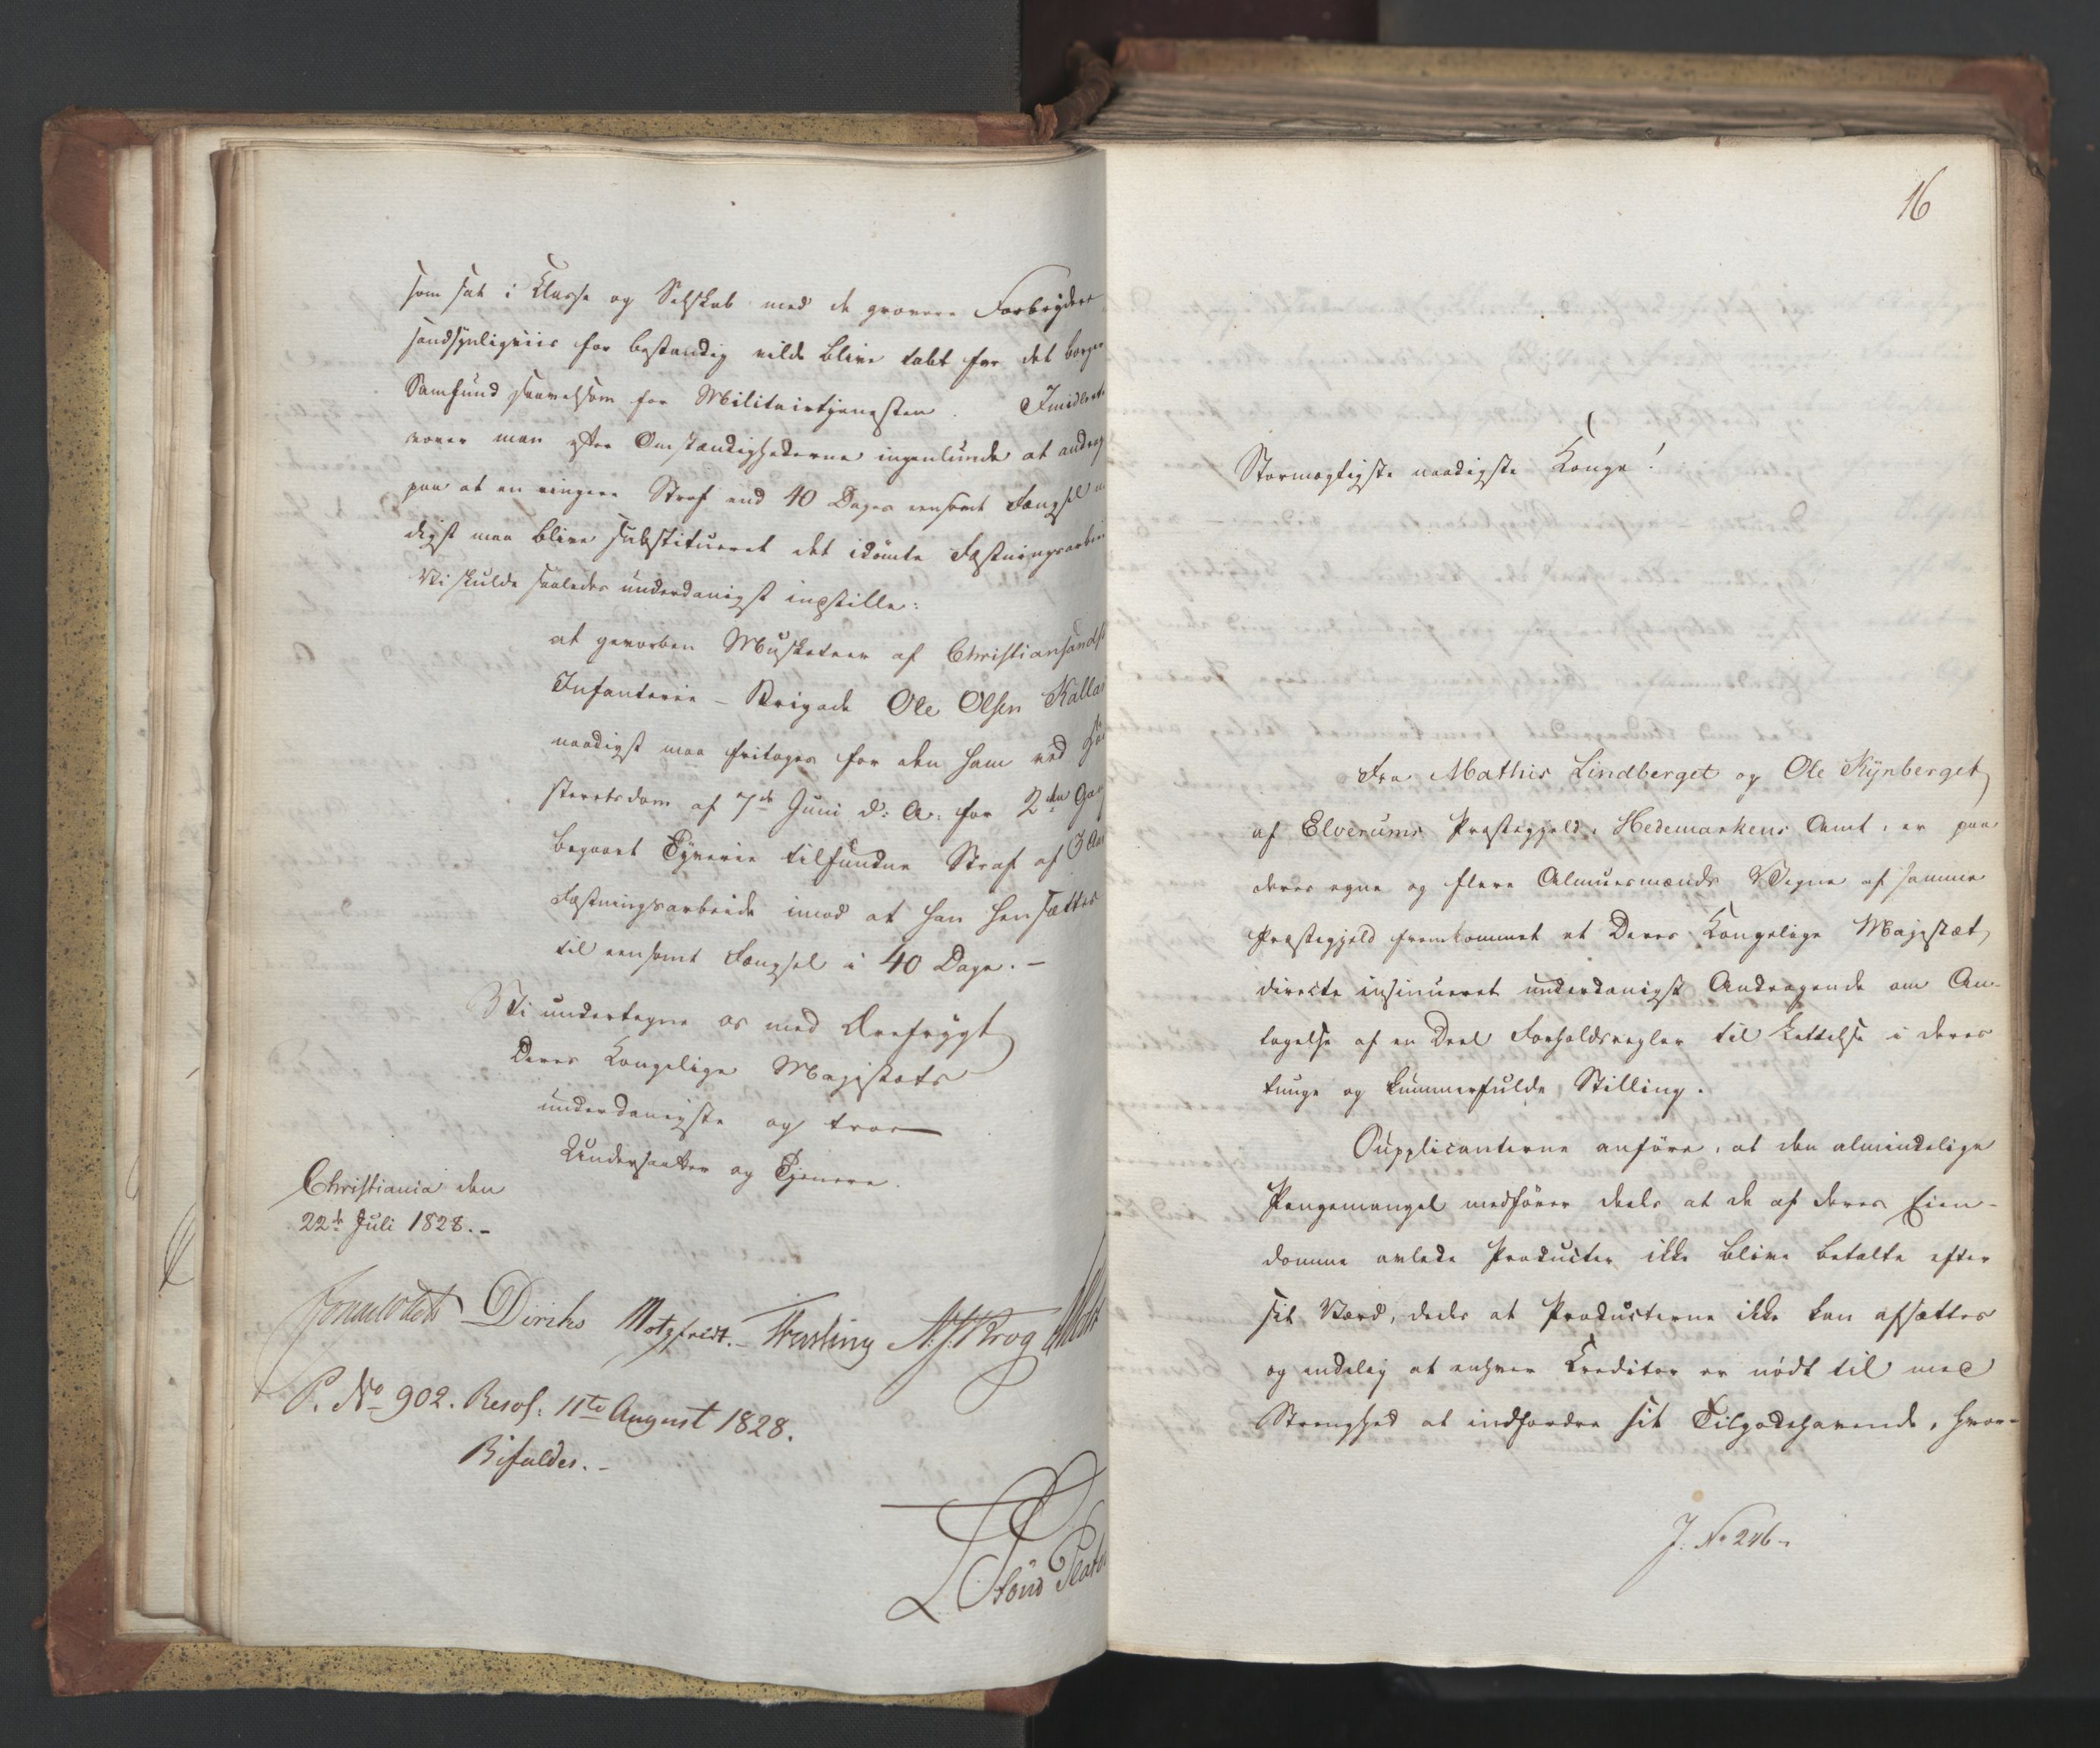 som sat i Klasse og Selskab med de grovere Forbrydere
sandsynligviis for bestandig vilde blive tabt for det borger
Samfund saavelsom for Militairtjenesten. Imidlert
vover man efter Omstændighederne ingenlunde at andrag
paa at en ringere Straf end 40 Dages eensomt Fængsel
digst maa blive substitueret det idömte Fæstningsarbei
Vi skulde saaledes underdanigst indstille:
at gevorben Musketeer af Christiansandsk
Infanterie-Brigade Ole Olsen Kallar
naadigst maa fritages for den ham ved
steretsdom af 7de Juni d: A: for 2den Gang
begaaet Tyverie tilfundne Straf af 3 Aars
Fæstningsarbeide imod at han hensættes
til eensomt Fængsel i 40 Dage. -
Vi undertegne os med Ærefrygt
Deres Kongelige Majestæts
underdanigste og troe
Undersaatter og Tjenere.
Christiania den
22de Juli 1828. -
Diriks Motzfeldt. - Treschow N. J. Krog
P. No 902. Resol: 11te August 1828.
Bifaldes. -
16
Stormægtigste naadigste Konge!
Fra Mathis Lindberget og Ole Kynberget
af Elverums Præstegjeld, Hedemarkens Amt, er paa
deres egne og flere Almuesmænds Vegne af samme
Præstegjeld fremkommet et Deres Kongelige Majestæt
directe insinueret underdanigst Andragende om An-
tagelse af en Deel Forholdsregler til Lettelse i deres
tunge og kummerfulde Stilling.
Supplicanterne anföre, at den almindelige
Pengemangel medförer deels at de af deres Eien-
domme avlede Producter ikke blive betalte efter
sit Værd, deels at Producterne ikke kan afsættes
og endelig at enhver Creditor er nödt til med
Strenghed at indfordre sit Tilgodehavende, hvor-
J. No 246 -